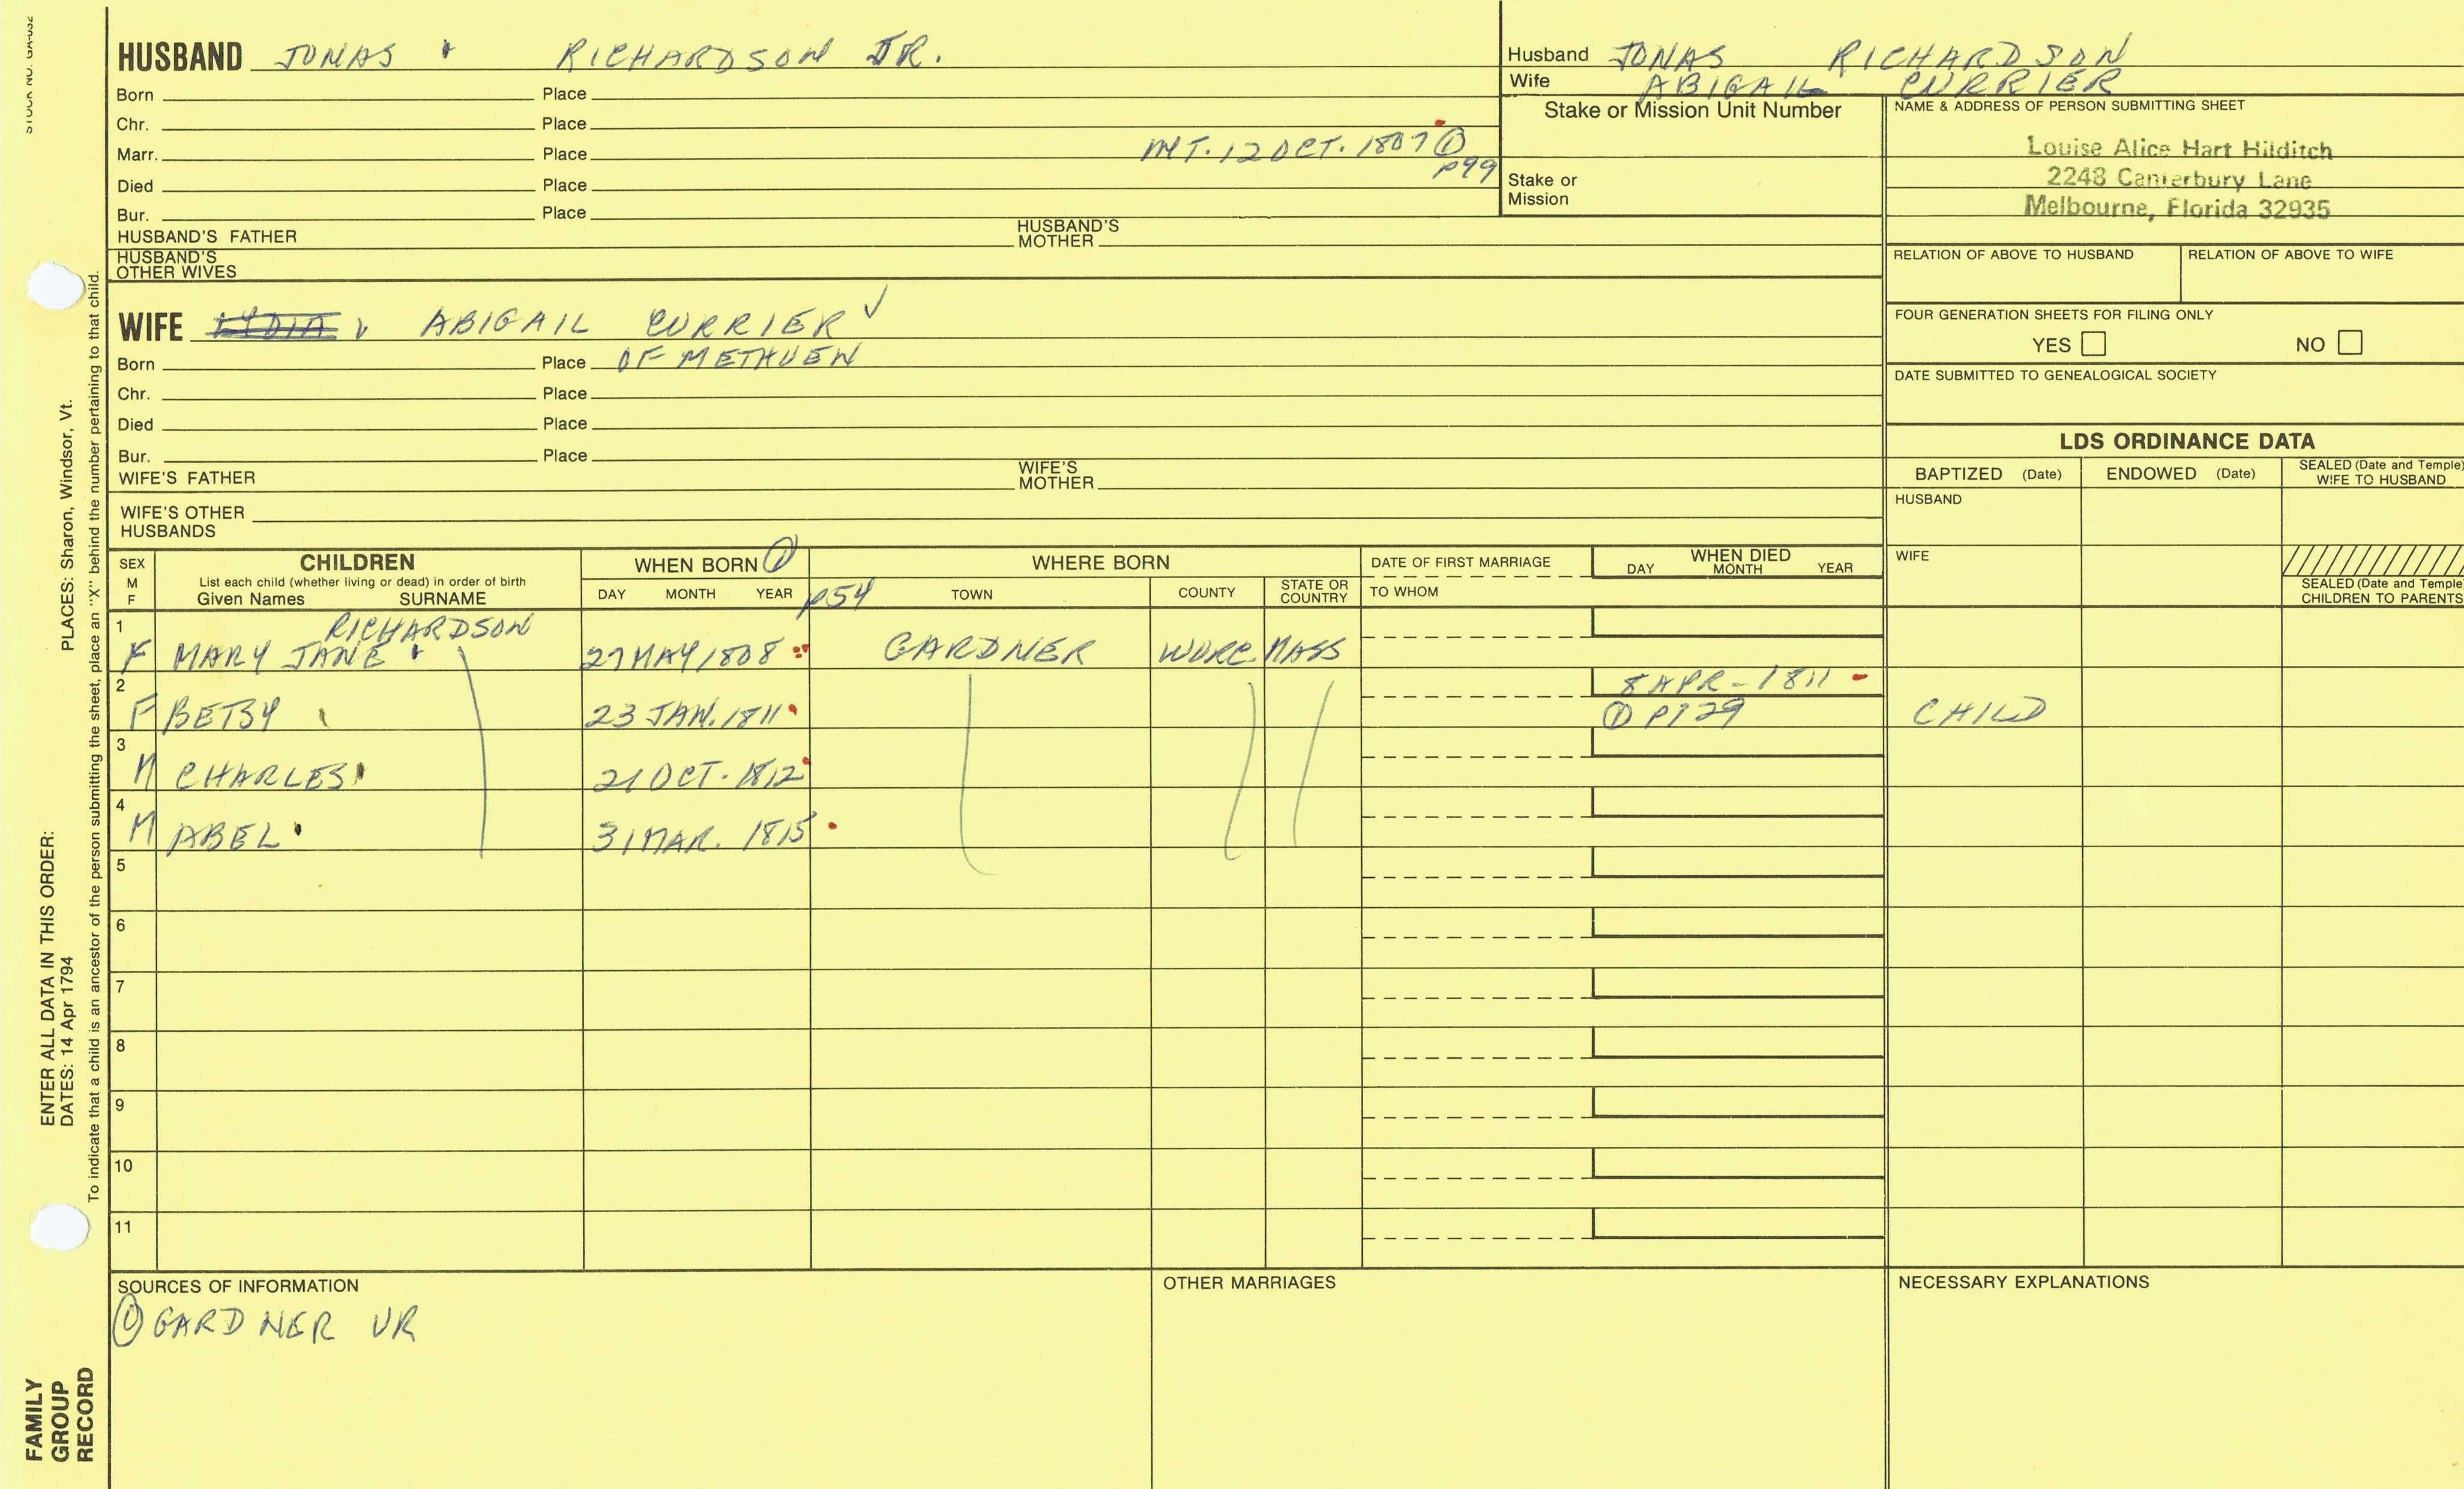 STOCK NO. GA-632
HUSBAND JONAS RICHARDSON JR.
Born Place
Chr. Place
Marr. Place MT. 12 OCT. 1807 ① P99
Died Place
Bur. Place
HUSBAND'S FATHER HUSBAND'S MOTHER
HUSBAND'S OTHER WIVES
Husband JONAS RICHARDSON
Wife ABIGAIL CURRIER
Stake or Mission Unit Number
Stake or Mission
NAME & ADDRESS OF PERSON SUBMITTING SHEET
Louise Alice Hart Hilditch
2248 Canterbury Lane
Melbourne, Florida 32935
RELATION OF ABOVE TO HUSBAND RELATION OF ABOVE TO WIFE
FOUR GENERATION SHEETS FOR FILING ONLY
YES NO
DATE SUBMITTED TO GENEALOGICAL SOCIETY
WIFE LYDIA ABIGAIL CURRIER ✓
Born Place OF METHUEN
Chr. Place
Died Place
Bur. Place
WIFE'S FATHER WIFE'S MOTHER
WIFE'S OTHER HUSBANDS
LDS ORDINANCE DATA
BAPTIZED (Date) ENDOWED (Date) SEALED (Date and Temple) WIFE TO HUSBAND
HUSBAND
WIFE
SEALED (Date and Temple) CHILDREN TO PARENTS
SEX M F
CHILDREN
List each child (whether living or dead) in order of birth
Given Names SURNAME
WHEN BORN ① P54
DAY MONTH YEAR
WHERE BORN
TOWN COUNTY STATE OR COUNTRY
DATE OF FIRST MARRIAGE
TO WHOM
WHEN DIED
DAY MONTH YEAR
1 RICHARDSON
F MARY JANE 27 MAY 1808 GARDNER WORC. MASS
2 8 APR - 1811
F BETSY 23 JAN. 1811 ① P129 CHILD
3
M CHARLES 21 OCT. 1812
4
M ABEL 31 MAR. 1815
5
6
7
8
9
10
11
SOURCES OF INFORMATION
① GARDNER VR
OTHER MARRIAGES
NECESSARY EXPLANATIONS
ENTER ALL DATA IN THIS ORDER:
DATES: 14 Apr 1794 PLACES: Sharon, Windsor, Vt.
To indicate that a child is an ancestor of the person submitting the sheet, place an "X" behind the number pertaining to that child.
FAMILY
GROUP
RECORD